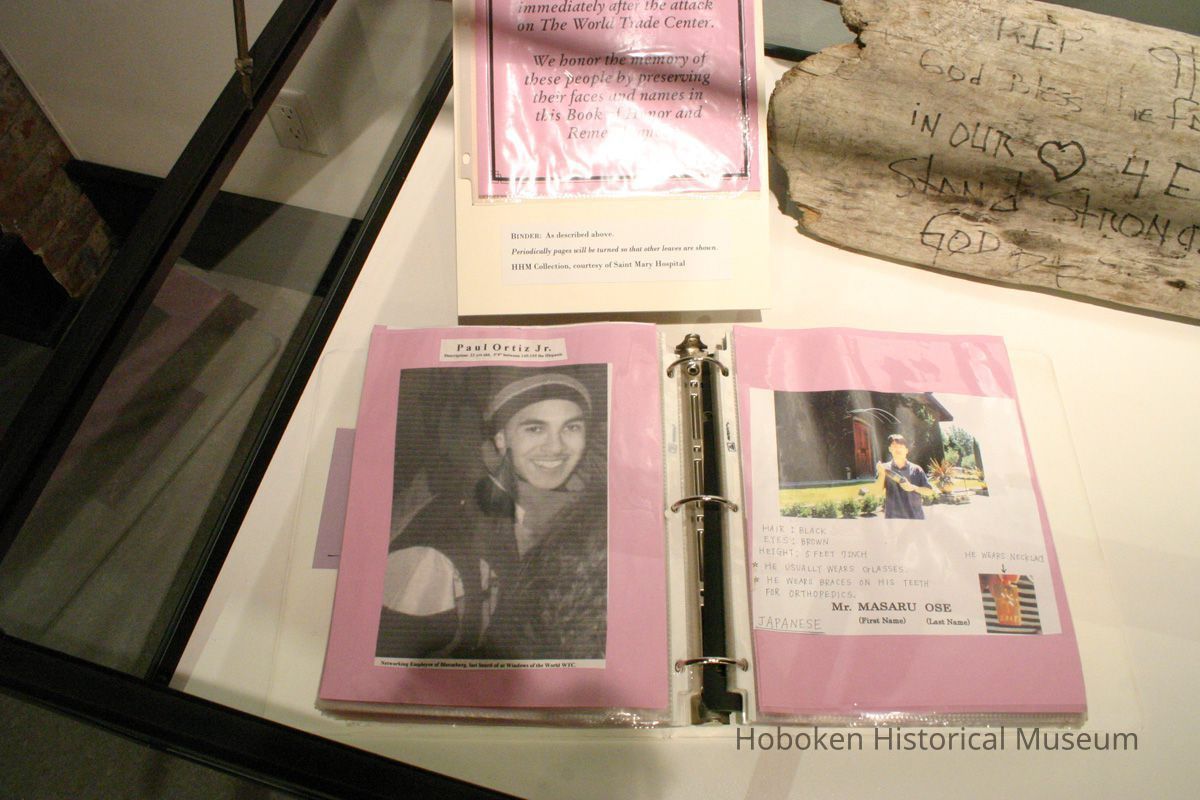 immediately after the attack
on The World Trade Center.
We honor the memory of
these people by preserving
their faces and names in
this Book of Honor and
BINDER: As described above.
Periodically pages will be turned so that other leaves are shown.
HHM Collection, courtesy of Saint Mary Hospital
RIP
GOD BLESS
IN OUR ♡ 4 E
STAND STRONG
GOD
Paul Ortiz Jr.
Networking Employee of Bloomberg, last heard of at Windows of the World WTC.
HAIR : BLACK
EYES : BROWN
HEIGHT : 5 FEET 7INCH
* HE USUALLY WEARS GLASSES.
* HE WEARS BRACES ON HIS TEETH
FOR ORTHOPEDICS.
HE WEARS NECKLACE
Mr. MASARU OSE
(First Name) (Last Name)
JAPANESE
Hoboken Historical Museum